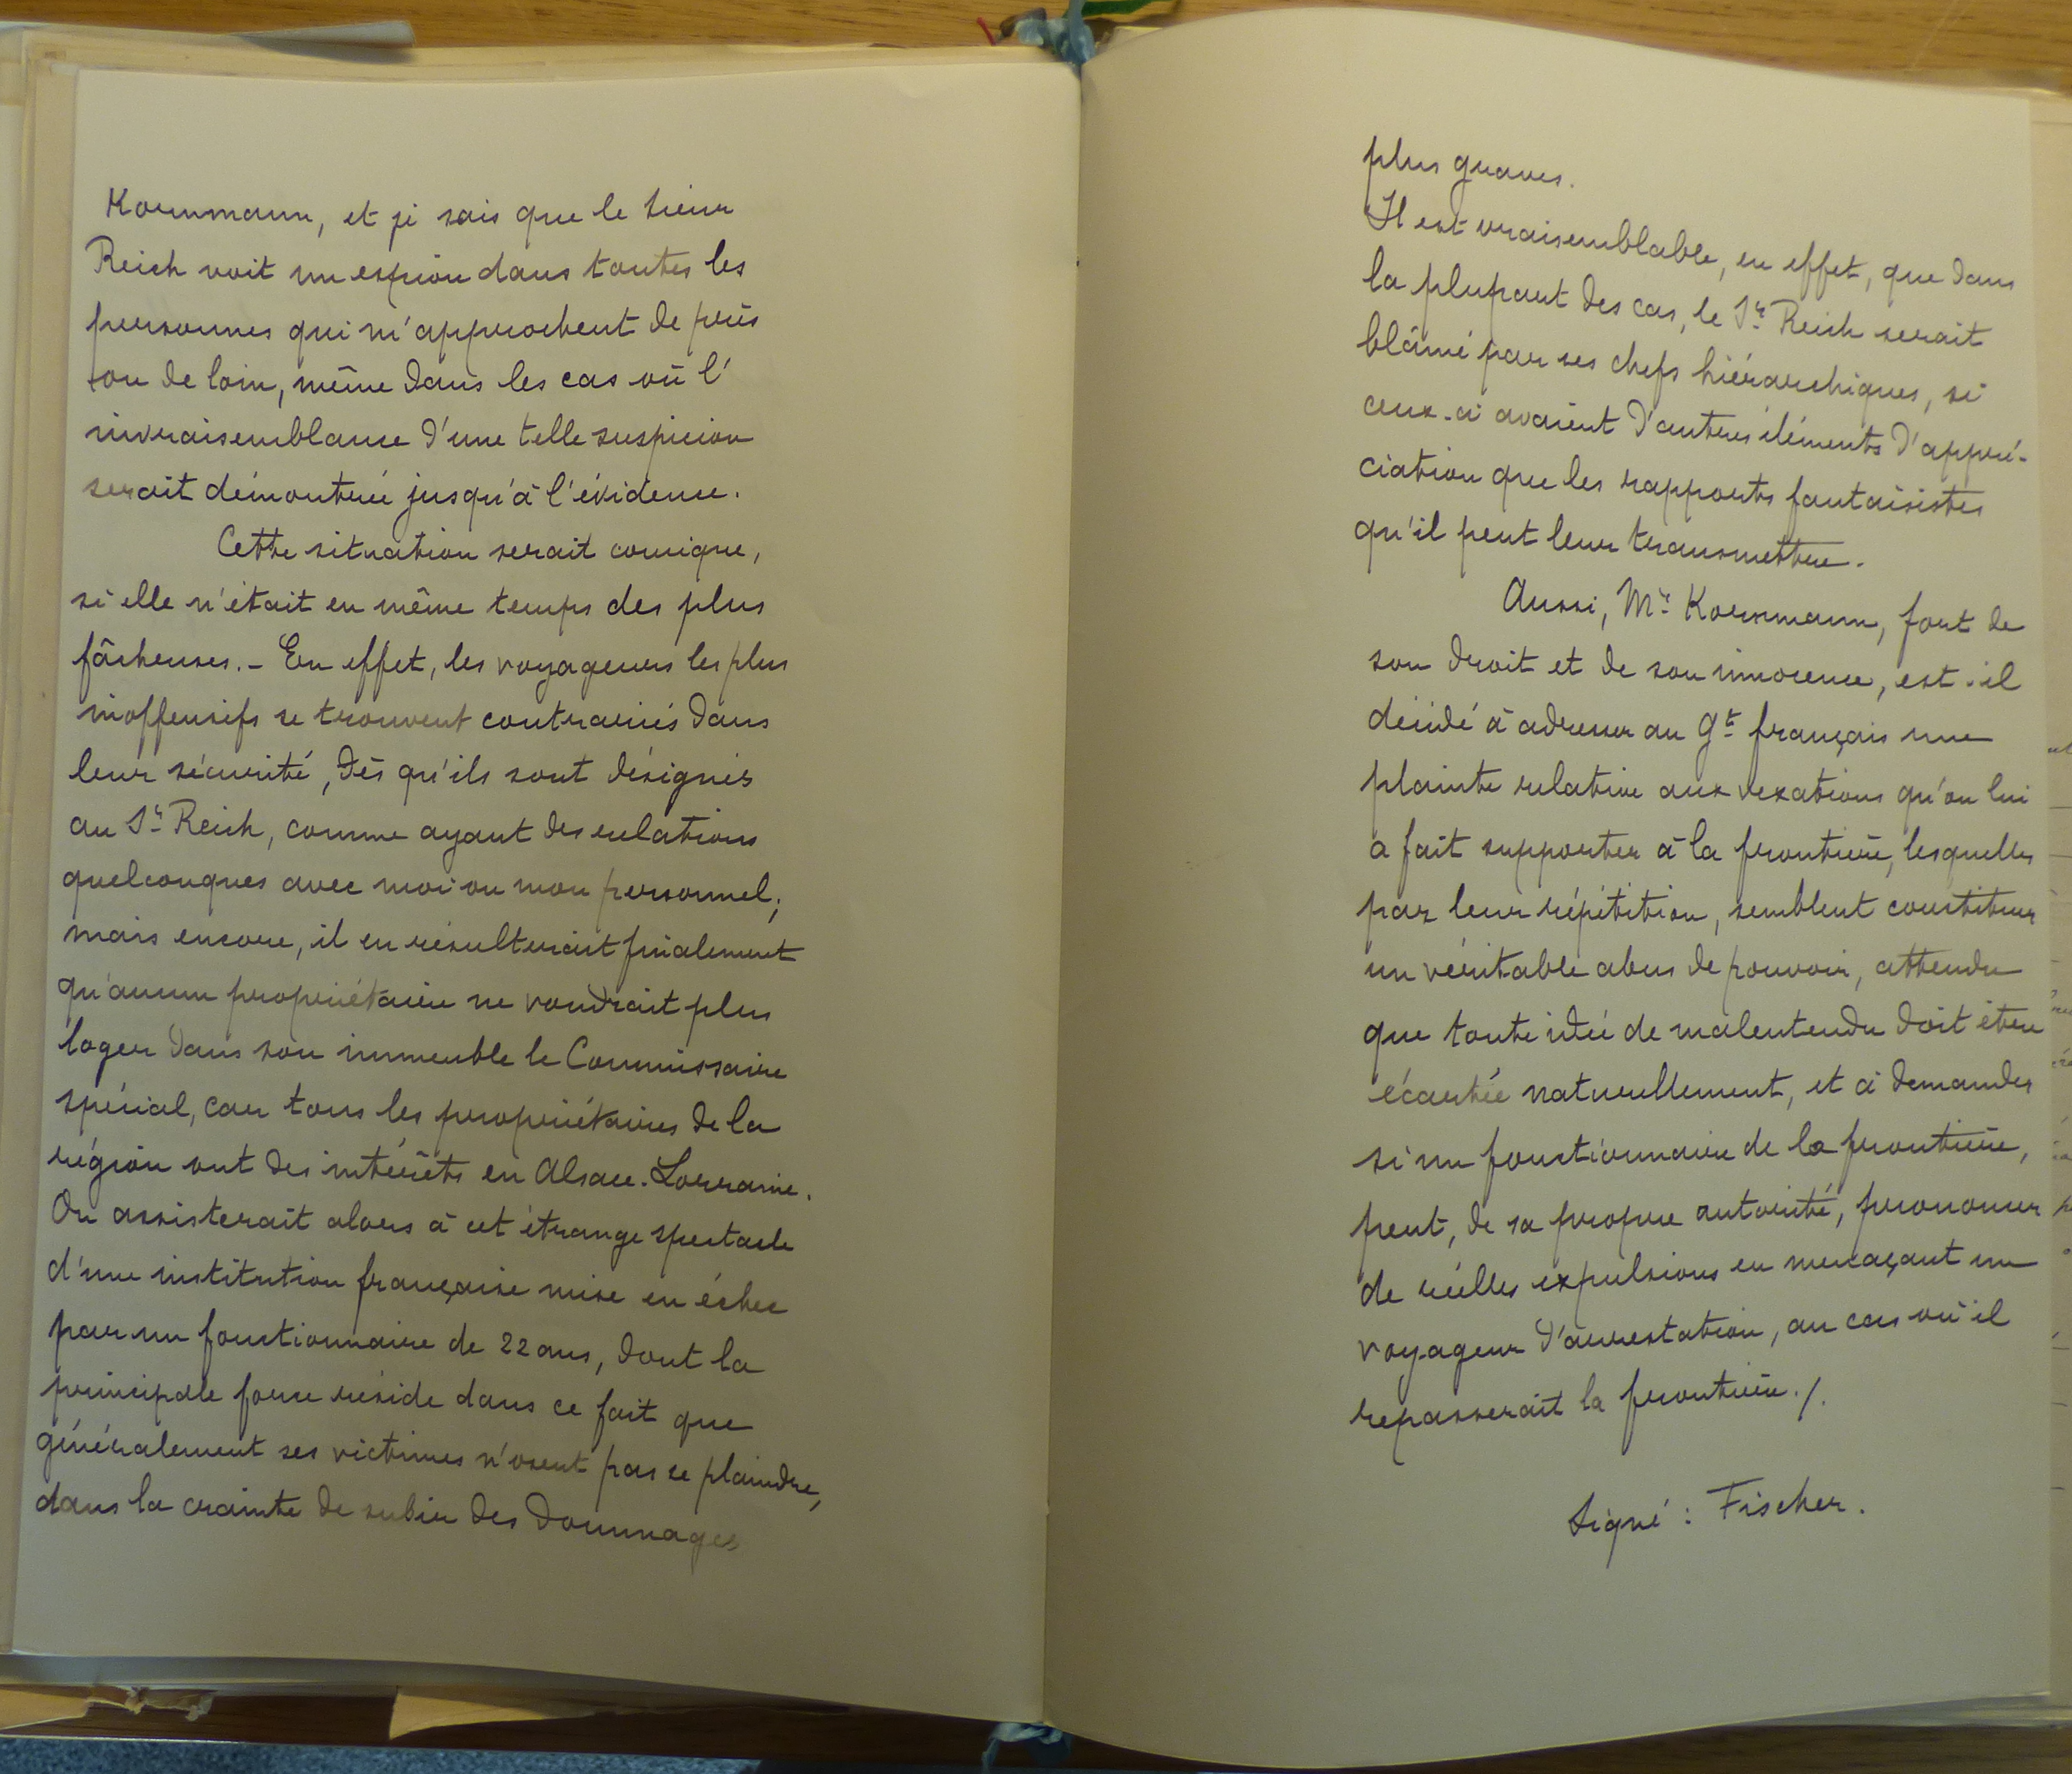 Kornmann, et je sais que le sieur
Reich voit un espion dans toutes les
personnes qui m'approchent de près
ou de loin, même dans les cas où l'
invraisemblance d'une telle suspicion
serait démontrée jusqu'à l'évidence.
Cette situation serait comique,
si elle n'était en même temps des plus
fâcheuses. - En effet, les voyageurs les plus
inoffensifs se trouvent contrariés dans
leur sécurité, dès qu'ils sont désignés
au Sr. Reich, comme ayant des relations
quelconques avec moi ou mon personnel;
mais encore, il en résulterait finalement
qu'aucun propriétaire ne voudrait plus
loger dans son immeuble le Commissaire
spécial, car tous les propriétaires de la
région ont des intérêts en Alsace-Lorraine.
On assisterait alors à cet étrange spectacle
d'une institution française mise en échec
par un fonctionnaire de 22 ans, dont la
principale force réside dans ce fait que
généralement ses victimes n'osent pas se plaindre,
dans la crainte de subir des dommages
plus graves.
Il est vraisemblable, en effet, que dans
la plupart des cas, le Sr. Reich serait
blâmé par ses chefs hiérarchiques, si
ceux-ci avaient d'autres éléments d'appré-
ciation que les rapports fantaisistes
qu'il peut leur transmettre.
Aussi, Mr. Kornmann, fort de
son droit et de son innocence, est-il
décidé à adresser au Gt. français une
plainte relative aux vexations qu'on lui
a fait supporter à la frontière, lesquelles
par leur répétition, semblent constituer
un véritable abus de pouvoir, attendu
que toute idée de malentendu doit être
écartée naturellement, et à demander
si un fonctionnaire de la frontière,
peut, de sa propre autorité, prononcer
de réelles expulsions en menaçant un
voyageur d'arrestation, au cas où il
repasserait la frontière./.
Signé : Fischer.